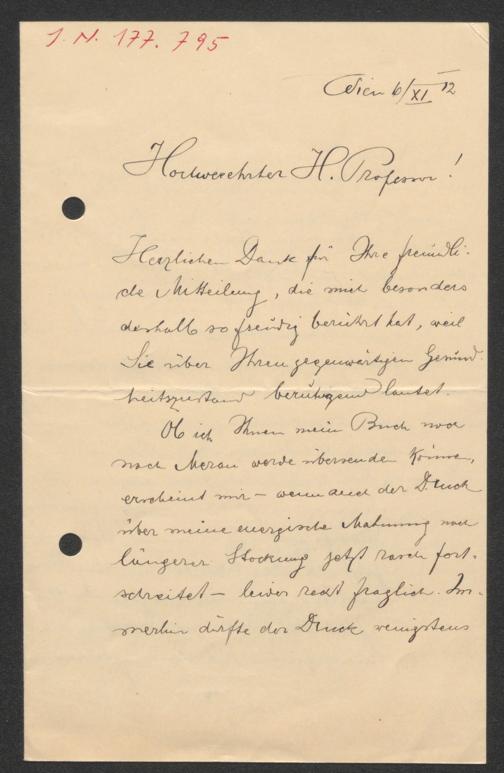 J. N. 177.795
Wien 6/XI 12
Hochverehrter H. Professor!
Herzlichen Dank für Ihre freundli-
che Mitteilung, die mich besonders
deshalb so freudig berührt hat, weil
Sie über Ihren gegenwärtigen Gesund-
heitszustand beruhigend lautet.
Ob ich Ihnen mein Buch noch
nach Meran werde übersenden können,
erscheint mir – wenn auch der Druck
über meine energische Mahnung nach
längerer Stockung jetzt rasch fort-
schreitet – leider recht fraglich. Im-
merhin dürfte der Druck wenigstens